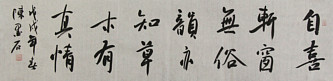 自喜
軒窗
無俗
韻亦
知草
木有
真情
戊戌年春
陳墨石